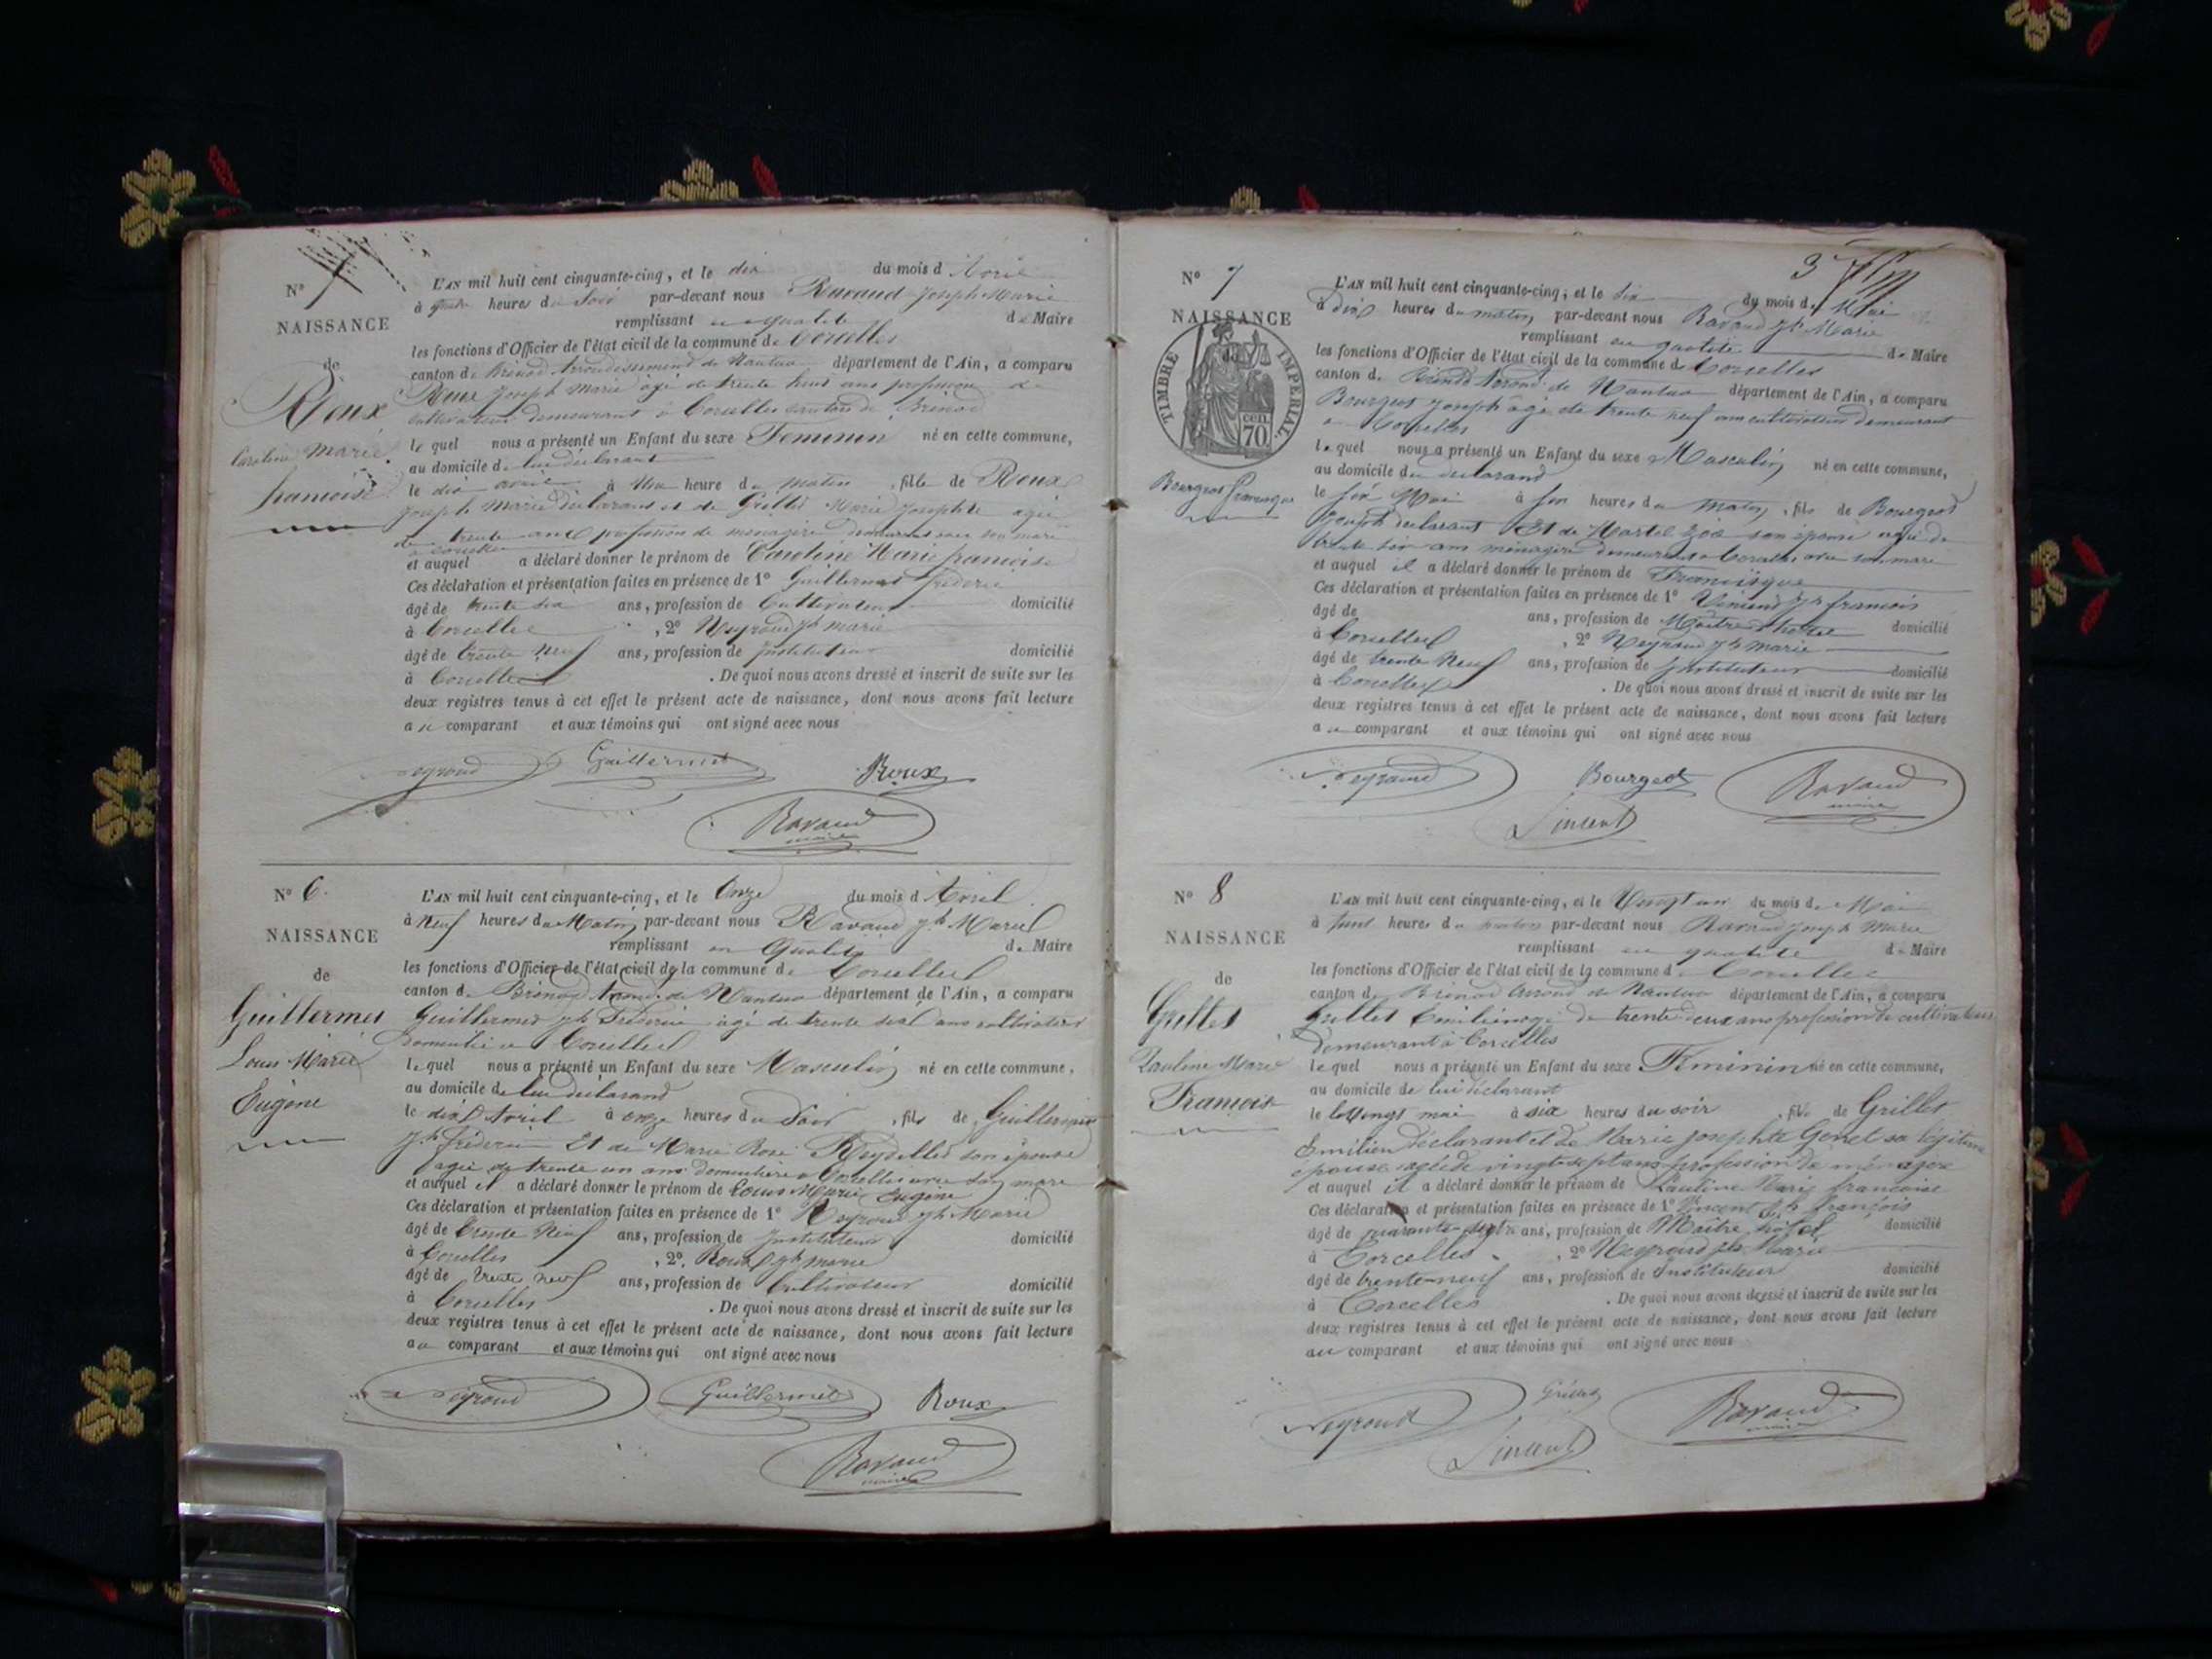 N°
NAISSANCE
de
Roux
Caroline Marie
francoise
L'AN mil huit cent cinquante-cinq, et le dix du mois d'Avril
à heures du Soir par-devant nous Ravaud Joseph Marie
remplissant en qualité de Maire
les fonctions d'Officier de l'état civil de la commune de Corcelles
canton de Brénod Arrondissement de Nantua département de l'Ain, a comparu
Roux Joseph Marie âgé de trente huit ans profession de
cultivateur demeurant à Corcelles canton de Brénod
lequel nous a présenté un Enfant du sexe Feminin né en cette commune,
au domicile de lui déclarant
le dix à heure du matin, fille de Roux
Joseph Marie déclarant et de Grillet Marie Josephte agée
de trente ans profession de menagère demeurant avec son mari
à Corcelles
et auquel a déclaré donner le prénom de Caroline Marie francoise
Ces déclaration et présentation faites en présence de 1° Guillermet frederic
âgé de trente six ans, profession de Cultivateur domicilié
à Corcelles, 2° Neyroud Jh marie
âgé de trente neuf ans, profession de Instituteur domicilié
à Corcelles. De quoi nous avons dressé et inscrit de suite sur les
deux registres tenus à cet effet le présent acte de naissance, dont nous avons fait lecture
au comparant et aux témoins qui ont signé avec nous
Neyroud Guillermet Roux
Ravaud
maire
N° 6.
NAISSANCE
de
Guillermet
Louis Marie
Eugène
L'AN mil huit cent cinquante-cinq, et le Onze du mois d'Avril
à Neuf heures du Matin par-devant nous Ravaud Jh Marie
remplissant en Qualité de Maire
les fonctions d'Officier de l'état civil de la commune de Corcelles
canton de Brénod Arrond. de Nantua département de l'Ain, a comparu
Guillermet Jh Frederic âgé de trente six ans cultivateur
domicilié à Corcelles
lequel nous a présenté un Enfant du sexe Masculin né en cette commune,
au domicile de lui déclarand
le dix Avril à onze heures du Soir, fils de Guillermet
Jh fréderic Et de Marie Rose Reydellet son épouse
agée de trente un ans domiciliée à Corcelles avec son mari
et auquel il a déclaré donner le prénom de Louis Marie Eugène
Ces déclaration et présentation faites en présence de 1° Neyroud Jh Marie
âgé de Trente Neuf ans, profession de Instituteur domicilié
à Corcelles, 2° Roux Jh marie
âgé de trente neuf ans, profession de Cultivateur domicilié
à Corcelles. De quoi nous avons dressé et inscrit de suite sur les
deux registres tenus à cet effet le présent acte de naissance, dont nous avons fait lecture
au comparant et aux témoins qui ont signé avec nous
Neyroud Guillermet Roux
Ravaud
maire
3
N° 7
NAISSANCE
TIMBRE IMPERIAL.
70 cen
Bourgeot Francisque
L'AN mil huit cent cinquante-cinq, et le six du mois de Mai
à dix heures du matin par-devant nous Ravaud Jh Marie
remplissant en qualité de Maire
les fonctions d'Officier de l'état civil de la commune de Corcelles
canton de Brénod Arrond. de Nantua département de l'Ain, a comparu
Bourgeot Joseph âgé de trente neuf ans cultivateur demeurant
à Corcelles
lequel nous a présenté un Enfant du sexe Masculin né en cette commune,
au domicile du declarand
le six Mai à heures du matin, fils de Bourgeot
Joseph declarant Et de Martel Zoé son épouse agée de
trente six ans ménagère demeurant à Corcelles avec son mari
et auquel il a déclaré donner le prénom de Francisque
Ces déclaration et présentation faites en présence de 1° Vincent Jh francois
âgé de ans, profession de Maître d'hôtel domicilié
à Corcelles, 2° Neyroud Jh marie
âgé de trente Neuf ans, profession de Instituteur domicilié
à Corcelles. De quoi nous avons dressé et inscrit de suite sur les
deux registres tenus à cet effet le présent acte de naissance, dont nous avons fait lecture
au comparant et aux témoins qui ont signé avec nous
Neyroud Bourgeot Ravaud
maire
Vincent
N° 8
NAISSANCE
de
Grillet
Pauline Marie
Francoise
L'AN mil huit cent cinquante-cinq, et le Vingt un du mois de Mai
à heures du matin par-devant nous Ravaud Joseph Marie
remplissant en qualité de Maire
les fonctions d'Officier de l'état civil de la commune de Corcelles
canton de Brénod Arrond de Nantua département de l'Ain, a comparu
Grillet Emilien agé de trente deux ans profession de cultivateur
demeurant à Corcelles
lequel nous a présenté un Enfant du sexe Féminin né en cette commune,
au domicile de lui déclarant
le vingt mai à six heures du soir, fille de Grillet
Emilien déclarant et de Marie Josephte Genet sa légitime
épouse agée de vingt-sept ans profession de ménagère
et auquel il a déclaré donner le prénom de Pauline Marie francoise
Ces déclaration et présentation faites en présence de 1° Vincent Jh françois
âgé de quarante-sept ans, profession de Maître hôtel domicilié
à Corcelles, 2° Neyroud Jh Marie
âgé de trente-neuf ans, profession de Instituteur domicilié
à Corcelles. De quoi nous avons dressé et inscrit de suite sur les
deux registres tenus à cet effet le présent acte de naissance, dont nous avons fait lecture
au comparant et aux témoins qui ont signé avec nous
Neyroud Grillet Ravaud
maire
Vincent